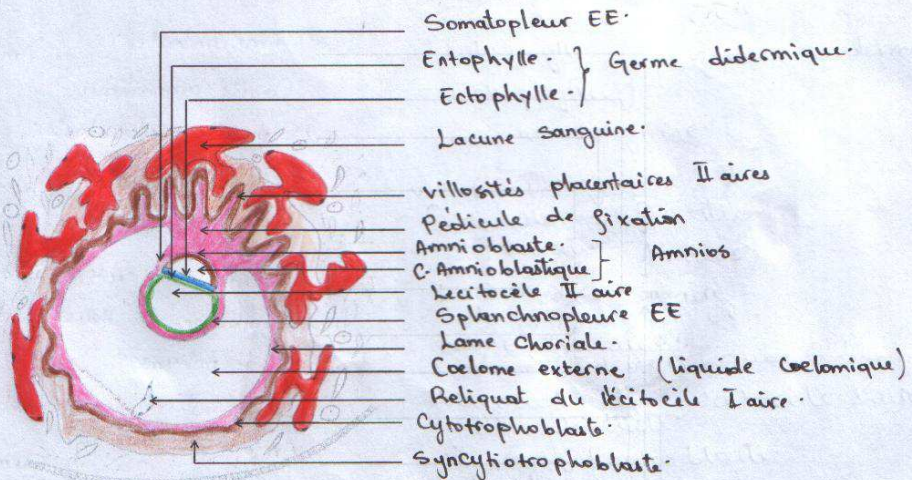 Somatopleur EE.
Entophylle. } Germe didermique.
Ectophylle.
Lacune Sanguine.
villosités placentaires II aires
Pédicule de fixation
Amnioblaste. ] Amnios
C. Amnioblastique
Lecitocèle II aire
Splanchnopleure EE
Lame choriale.
Coelome externe (liquide Coelomique)
Reliquat du lécitocèle I aire.
Cytotrophoblaste.
Syncytiotrophoblaste.